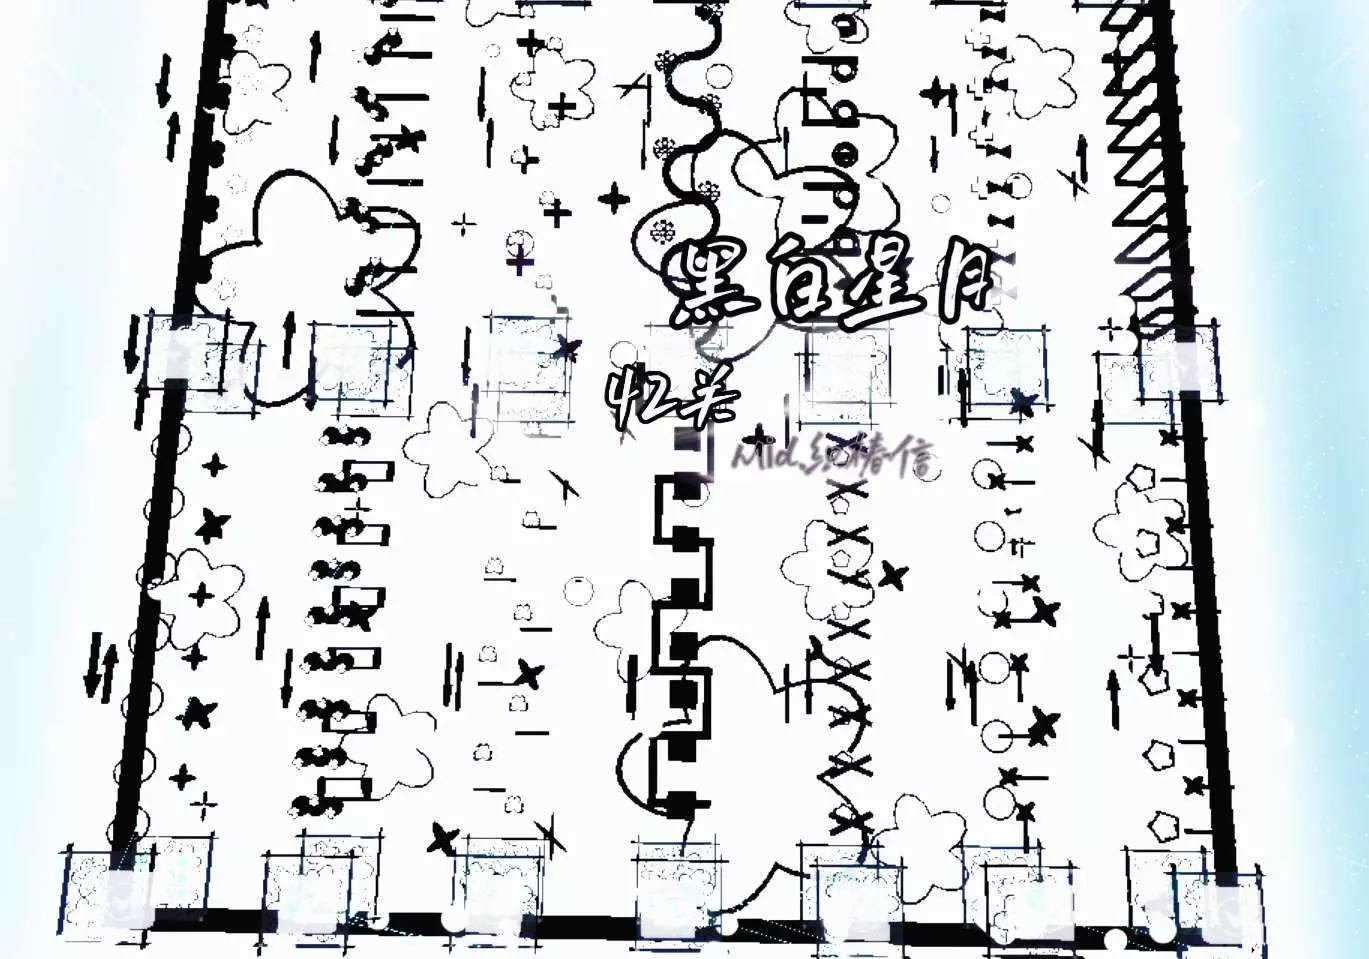 黑白星月
42关
Mid.织椿信